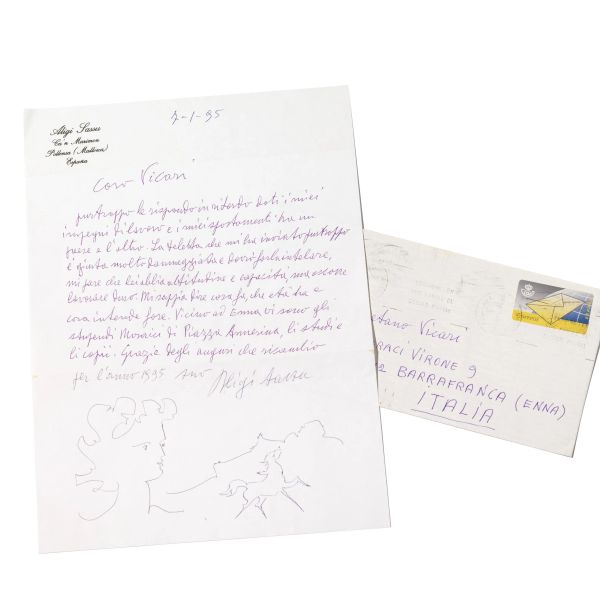 Aligi Sassu
Ca'n Marimon
Pollensa (Mallorca)
España
7-1-95
Caro Vicari
purtroppo le rispondo in ritardo dati i miei
impegni di lavoro e i miei spostamenti tra un
paese e l'altro. La teletta che mi ha inviato purtroppo
è giunta molto danneggiata e dovrò farla intelare,
mi pare che lei abbia attitudine e capacità, ma occorre
lavorare duro. Mi sappia dire cosa fa, che età ha e
cosa intende fare. Vicino ad Enna vi sono gli
stupendi Mosaici di Piazza Armerina, li studi e
li copi. Grazie degli auguri che ricambio
per l'anno 1995 suo Aligi Sassu
etano Vicari
RACI VIRONE 9
BARRAFRANCA (ENNA)
ITALIA
Correos